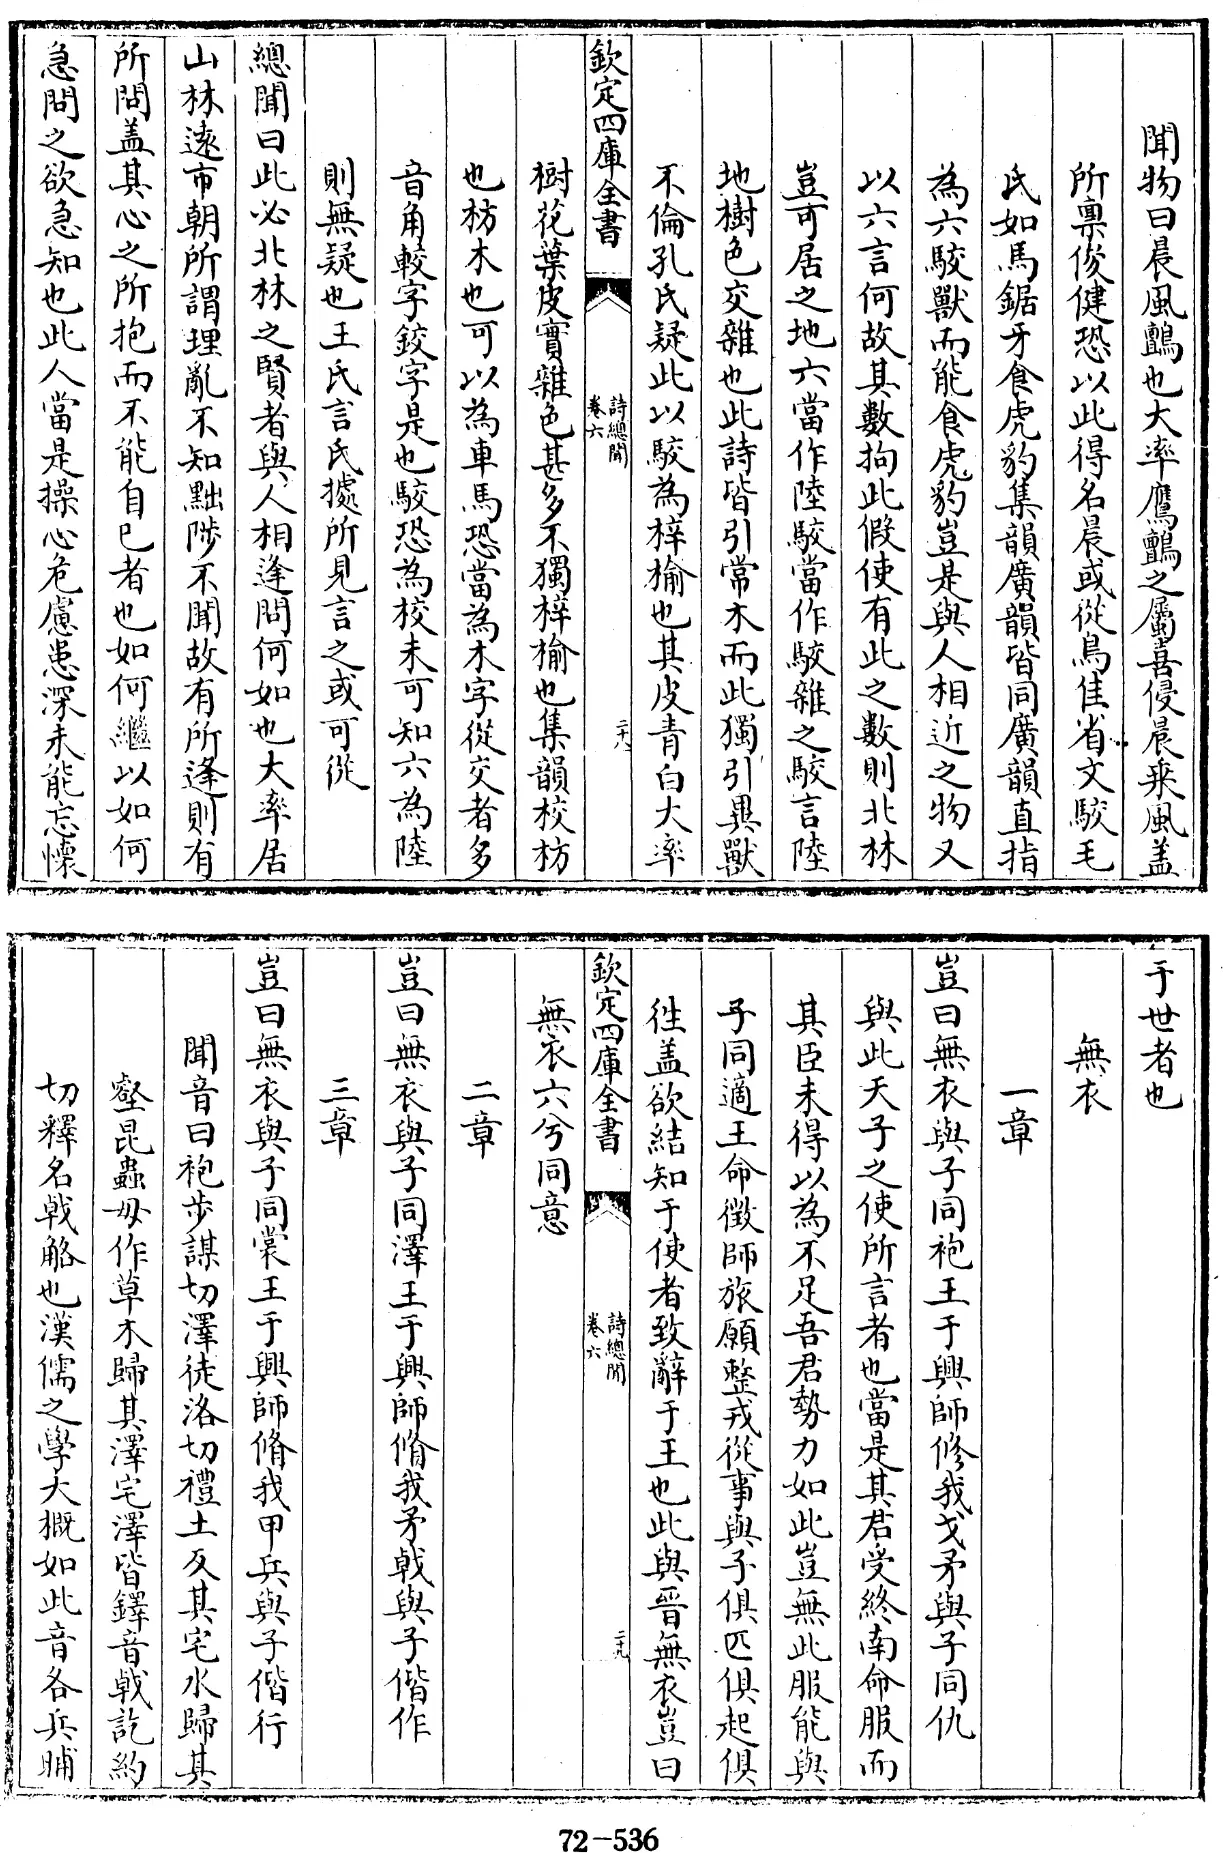 聞物曰晨風鸇也大率鷹鸇之屬喜侵晨乘風盖
所禀俊健恐以此得名晨或從鳥隹省文駮毛
氏如馬鋸牙食虎豹集韻廣韻皆同廣韻直指
為六駮獸而能食虎豹豈是與人相近之物又
以六言何故其數拘此假使有此之數則北林
豈可居之地六當作陸駮當作駮雜之駮言陸
地樹色交雜也此詩皆引常木而此獨引異獸
不倫孔氏疑此以駮為梓榆也其皮青白大率
欽定四庫全書
詩總聞
卷六
二十八
樹花葉皮實雜色甚多不獨梓榆也集韻校枋
也枋木也可以為車馬恐當為木字從交者多
音角較字鉸字是也駮恐為校未可知六為陸
則無疑也王氏言氏據所見言之或可從
總聞曰此必北林之賢者與人相逢問何如也大率居
山林遠市朝所謂理亂不知黜陟不聞故有所逢則有
所問盖其心之所抱而不能自已者也如何繼以如何
急問之欲急知也此人當是操心危慮患深未能忘懷
于世者也
無衣
一章
豈曰無衣與子同袍王于興師修我戈矛與子同仇
與此天子之使所言者也當是其君受終南命服而
其臣未得以為不足吾君勢力如此豈無此服能與
子同適王命徴師旅願整戎從事與子俱匹俱起俱
徃盖欲結知于使者致辭于王也此與晉無衣豈曰
欽定四庫全書
詩總聞
卷六
二十九
無衣六兮同意
二章
豈曰無衣與子同澤王于興師脩我矛戟與子偕作
三章
豈曰無衣與子同裳王于興師脩我甲兵與子偕行
聞音曰袍步謀切澤徒洛切禮土反其宅水歸其
壑昆蟲毋作草木歸其澤宅澤皆鐸音戟訖約
切釋名戟觡也漢儒之學大概如此音各兵晡
72-536